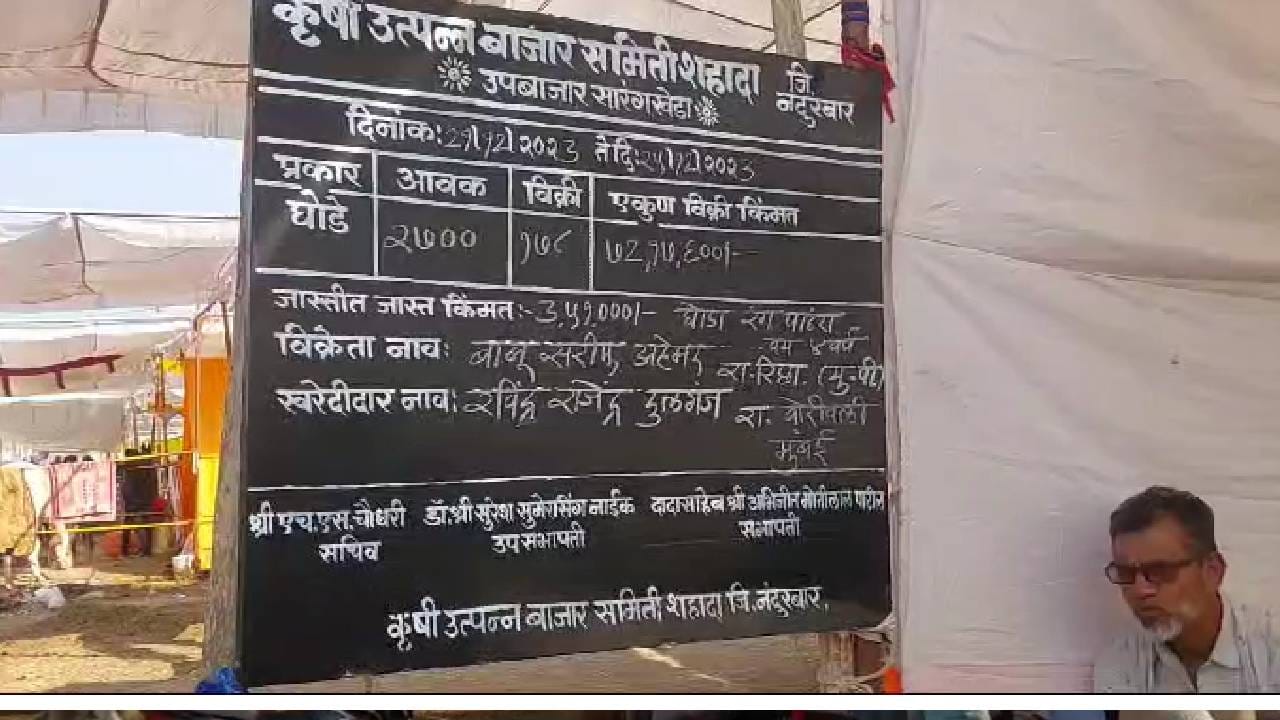 कृषी उत्पन्न बाजार समिती शहादा जि. नंदुरबार
उपबाजार सारंगखेडा
दिनांक: २१/१२/२०२३ ते दि: २५/१२/२०२३
प्रकार आवक विक्री एकुण विक्री किंमत
घोडे २७०० १७८ ७२,१७,६००/-
जास्तीत जास्त किंमत:- ३,५१,०००/- घोडा रंग पांढरा
वय ४ वर्ष
विक्रेता नाव: बाबू सरीफ अहेमद रा. (यु-पी)
खरेदीदार नाव: रविंद्र राजेंद्र दुलगंज रा. बोरीवली
मुंबई
श्री एच.एस.चौधरी डॉ.श्री सुरेश सुमेरसिंग नाईक दादासाहेब श्री अभिजीत मोतीलाल पाटील
सचिव उपसभापती सभापती
कृषी उत्पन्न बाजार समिती शहादा जि. नंदुरबार.